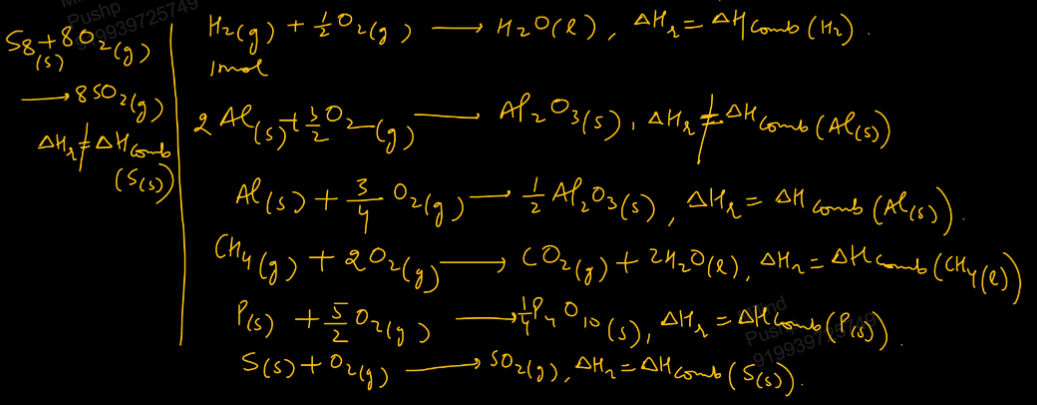 S₈(s) + 8O₂(g)
⟶ 8SO₂(g)
ΔHᵣ ≠ ΔHcomb
(S(s))
H₂(g) + 1/2 O₂(g) ⟶ H₂O(l), ΔHᵣ = ΔHcomb (H₂).
1mol
2Al(s) + 3/2 O₂(g) ⟶ Al₂O₃(s), ΔHᵣ ≠ ΔHcomb (Al(s))
Al(s) + 3/4 O₂(g) ⟶ 1/2 Al₂O₃(s), ΔHᵣ = ΔHcomb (Al(s)).
CH₄(g) + 2O₂(g) ⟶ CO₂(g) + 2H₂O(l), ΔHᵣ = ΔHcomb (CH₄(l))
P(s) + 5/2 O₂(g) ⟶ 1/4 P₄O₁₀(s), ΔHᵣ = ΔHcomb (P(s)).
S(s) + O₂(g) ⟶ SO₂(g), ΔHᵣ = ΔHcomb (S(s)).
Pushp
919939725749